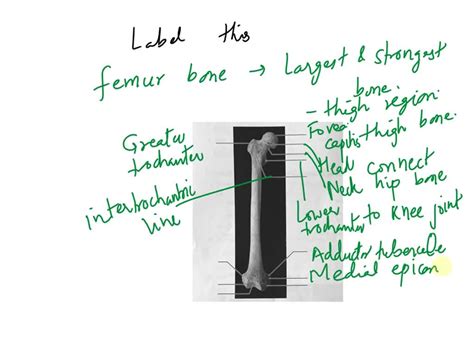 Label this
femur bone → Largest & strongest
bone.
- thigh region.
Fovea
capitis thigh bone.
Greater
trochanter
Head connect
Neck hip bone
intertrochantric
line
Lower to knee joint
trochanter
Adductor tubercule
Medial epicon